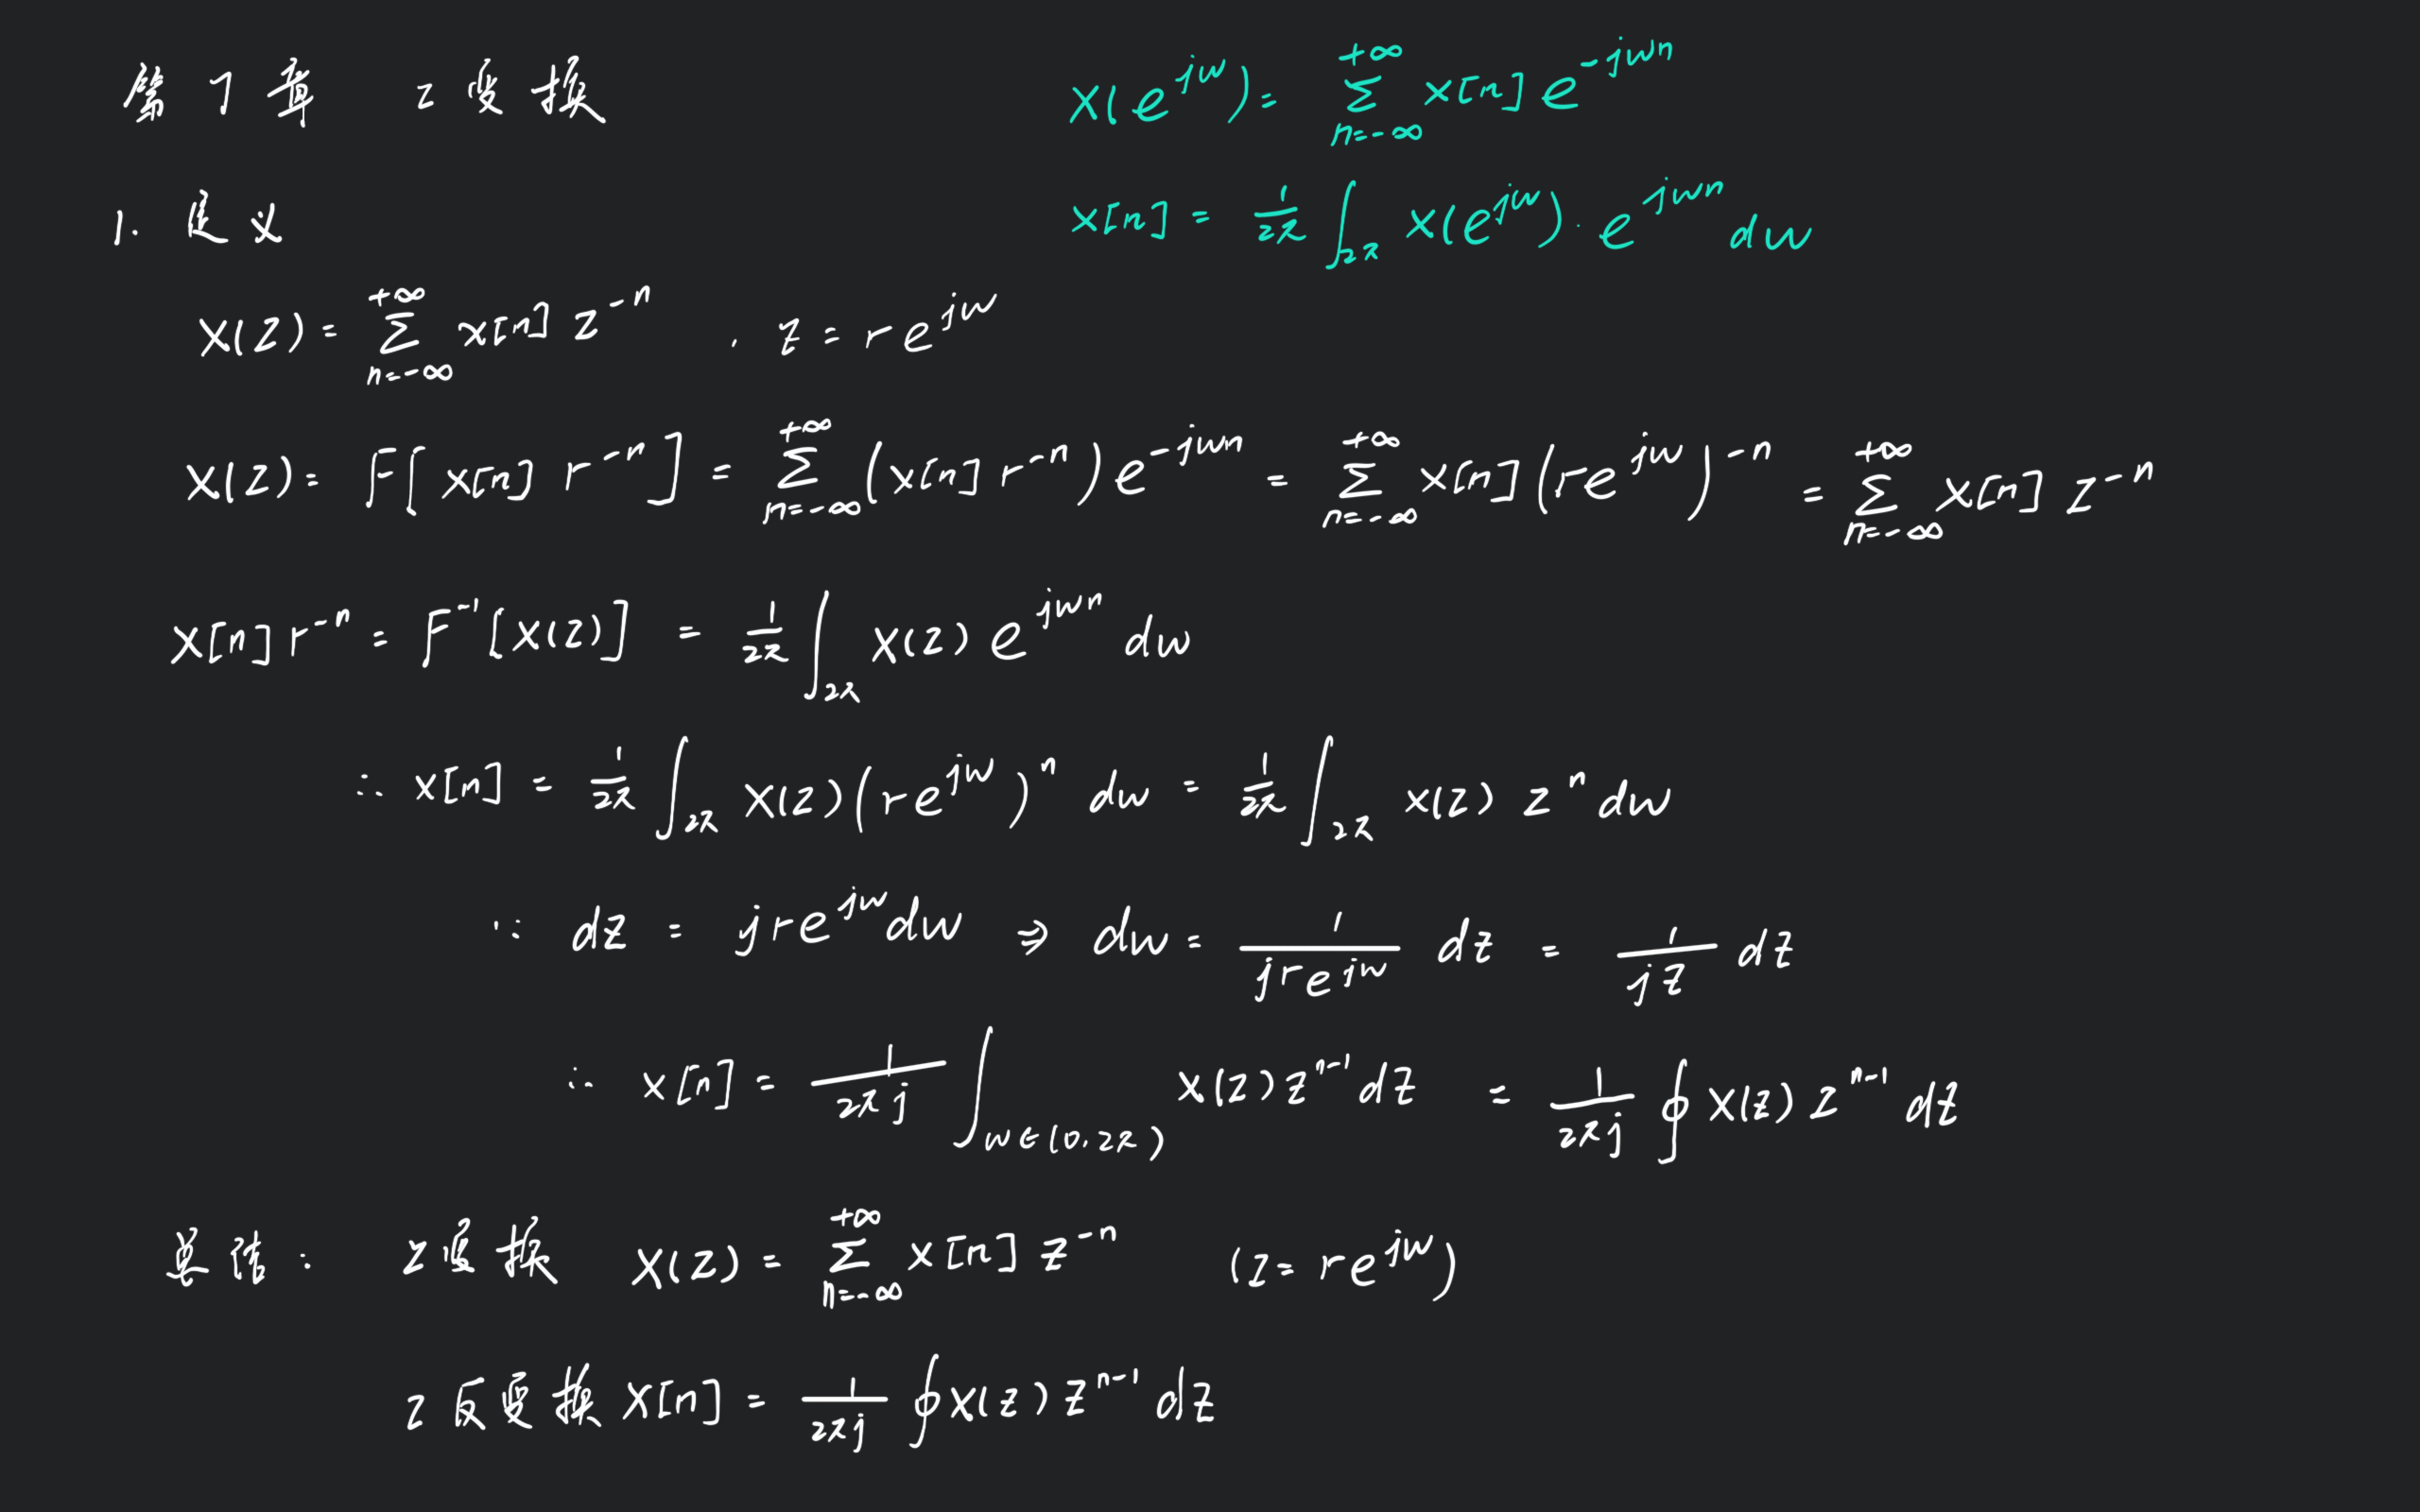 第7章 z变换
X(e^{jw}) = \sum_{n=-∞}^{+∞} x[n] e^{-jwn}
1. 定义
x[n] = \frac{1}{2π} \int_{2π} X(e^{jw}) · e^{jwn} dw
X(z) = \sum_{n=-∞}^{+∞} x[n] z^{-n} , z = re^{jw}
X(z) = F[x[n] r^{-n}] = \sum_{n=-∞}^{+∞} (x[n] r^{-n}) e^{-jwn} = \sum_{n=-∞}^{+∞} x[n] (re^{jw})^{-n} = \sum_{n=-∞}^{+∞} x[n] z^{-n}
x[n] r^{-n} = F^{-1}[X(z)] = \frac{1}{2π} \int_{2π} X(z) e^{jwn} dw
∴ x[n] = \frac{1}{2π} \int_{2π} X(z) (re^{jw})^n dw = \frac{1}{2π} \int_{2π} X(z) z^n dw
∵ dz = jre^{jw} dw ⇒ dw = \frac{1}{jre^{jw}} dz = \frac{1}{jz} dz
∴ x[n] = \frac{1}{2πj} \int_{w∈(0,2π)} X(z) z^{n-1} dz = \frac{1}{2πj} \oint X(z) z^{n-1} dz
总结: z变换 X(z) = \sum_{n=-∞}^{+∞} x[n] z^{-n} (z = re^{jw})
z反变换 x[n] = \frac{1}{2πj} \oint X(z) z^{n-1} dz